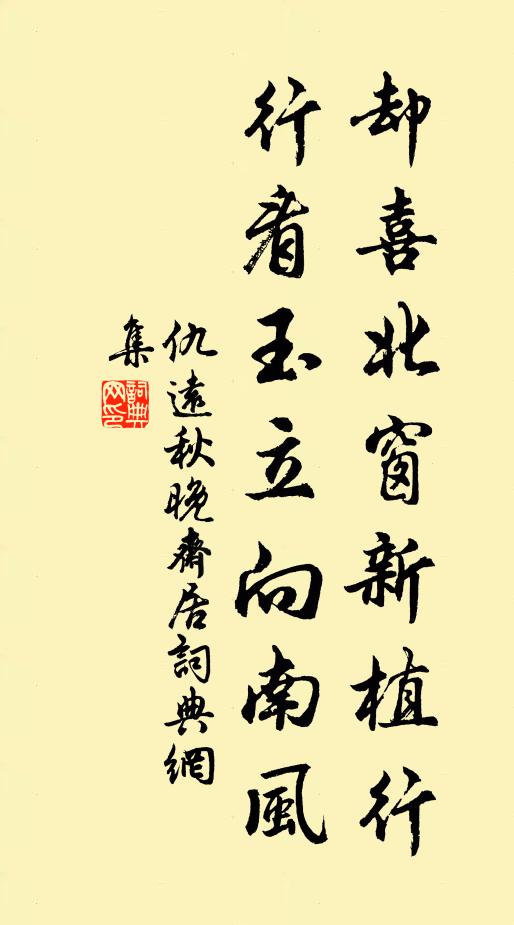 却喜北窗新植行
行看玉立向南風
仇遠秋晚齋居詞典網
集
詞典網印